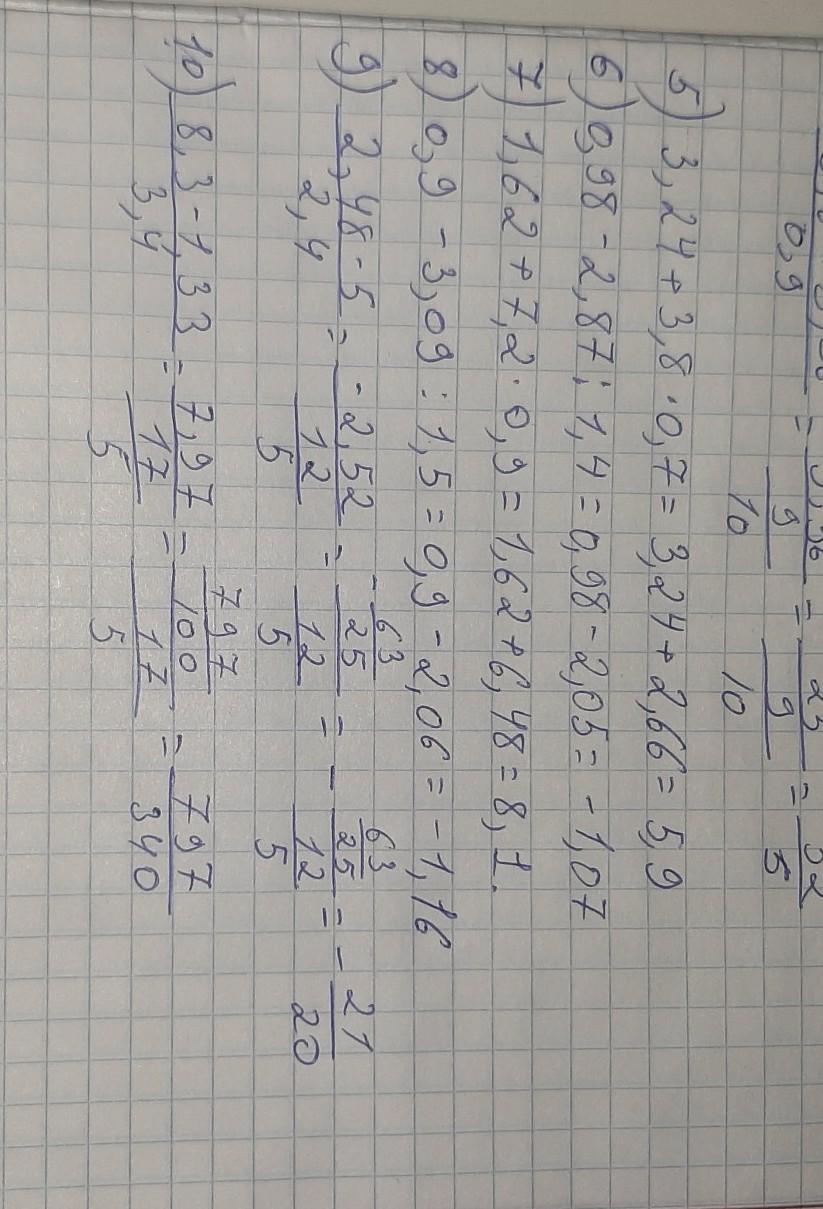 0,9 = 9/10 = 9/10 = 32/5
5) 3,24 + 3,8 · 0,7 = 3,24 + 2,66 = 5,9
6) 0,98 - 2,87 : 1,4 = 0,98 - 2,05 = - 1,07
7) 1,62 + 7,2 · 0,9 = 1,62 + 6,48 = 8,1.
8) 0,9 - 3,09 : 1,5 = 0,9 - 2,06 = - 1,16
9) (2,48 - 5)/(2,4) = (-2,52)/(12/5) = (-63/25)/(12/5) = - (63/25)/(12/5) = - 21/20
10) (8,3 - 1,33)/(3,4) = (7,97)/(17/5) = (797/100)/(17/5) = 797/340